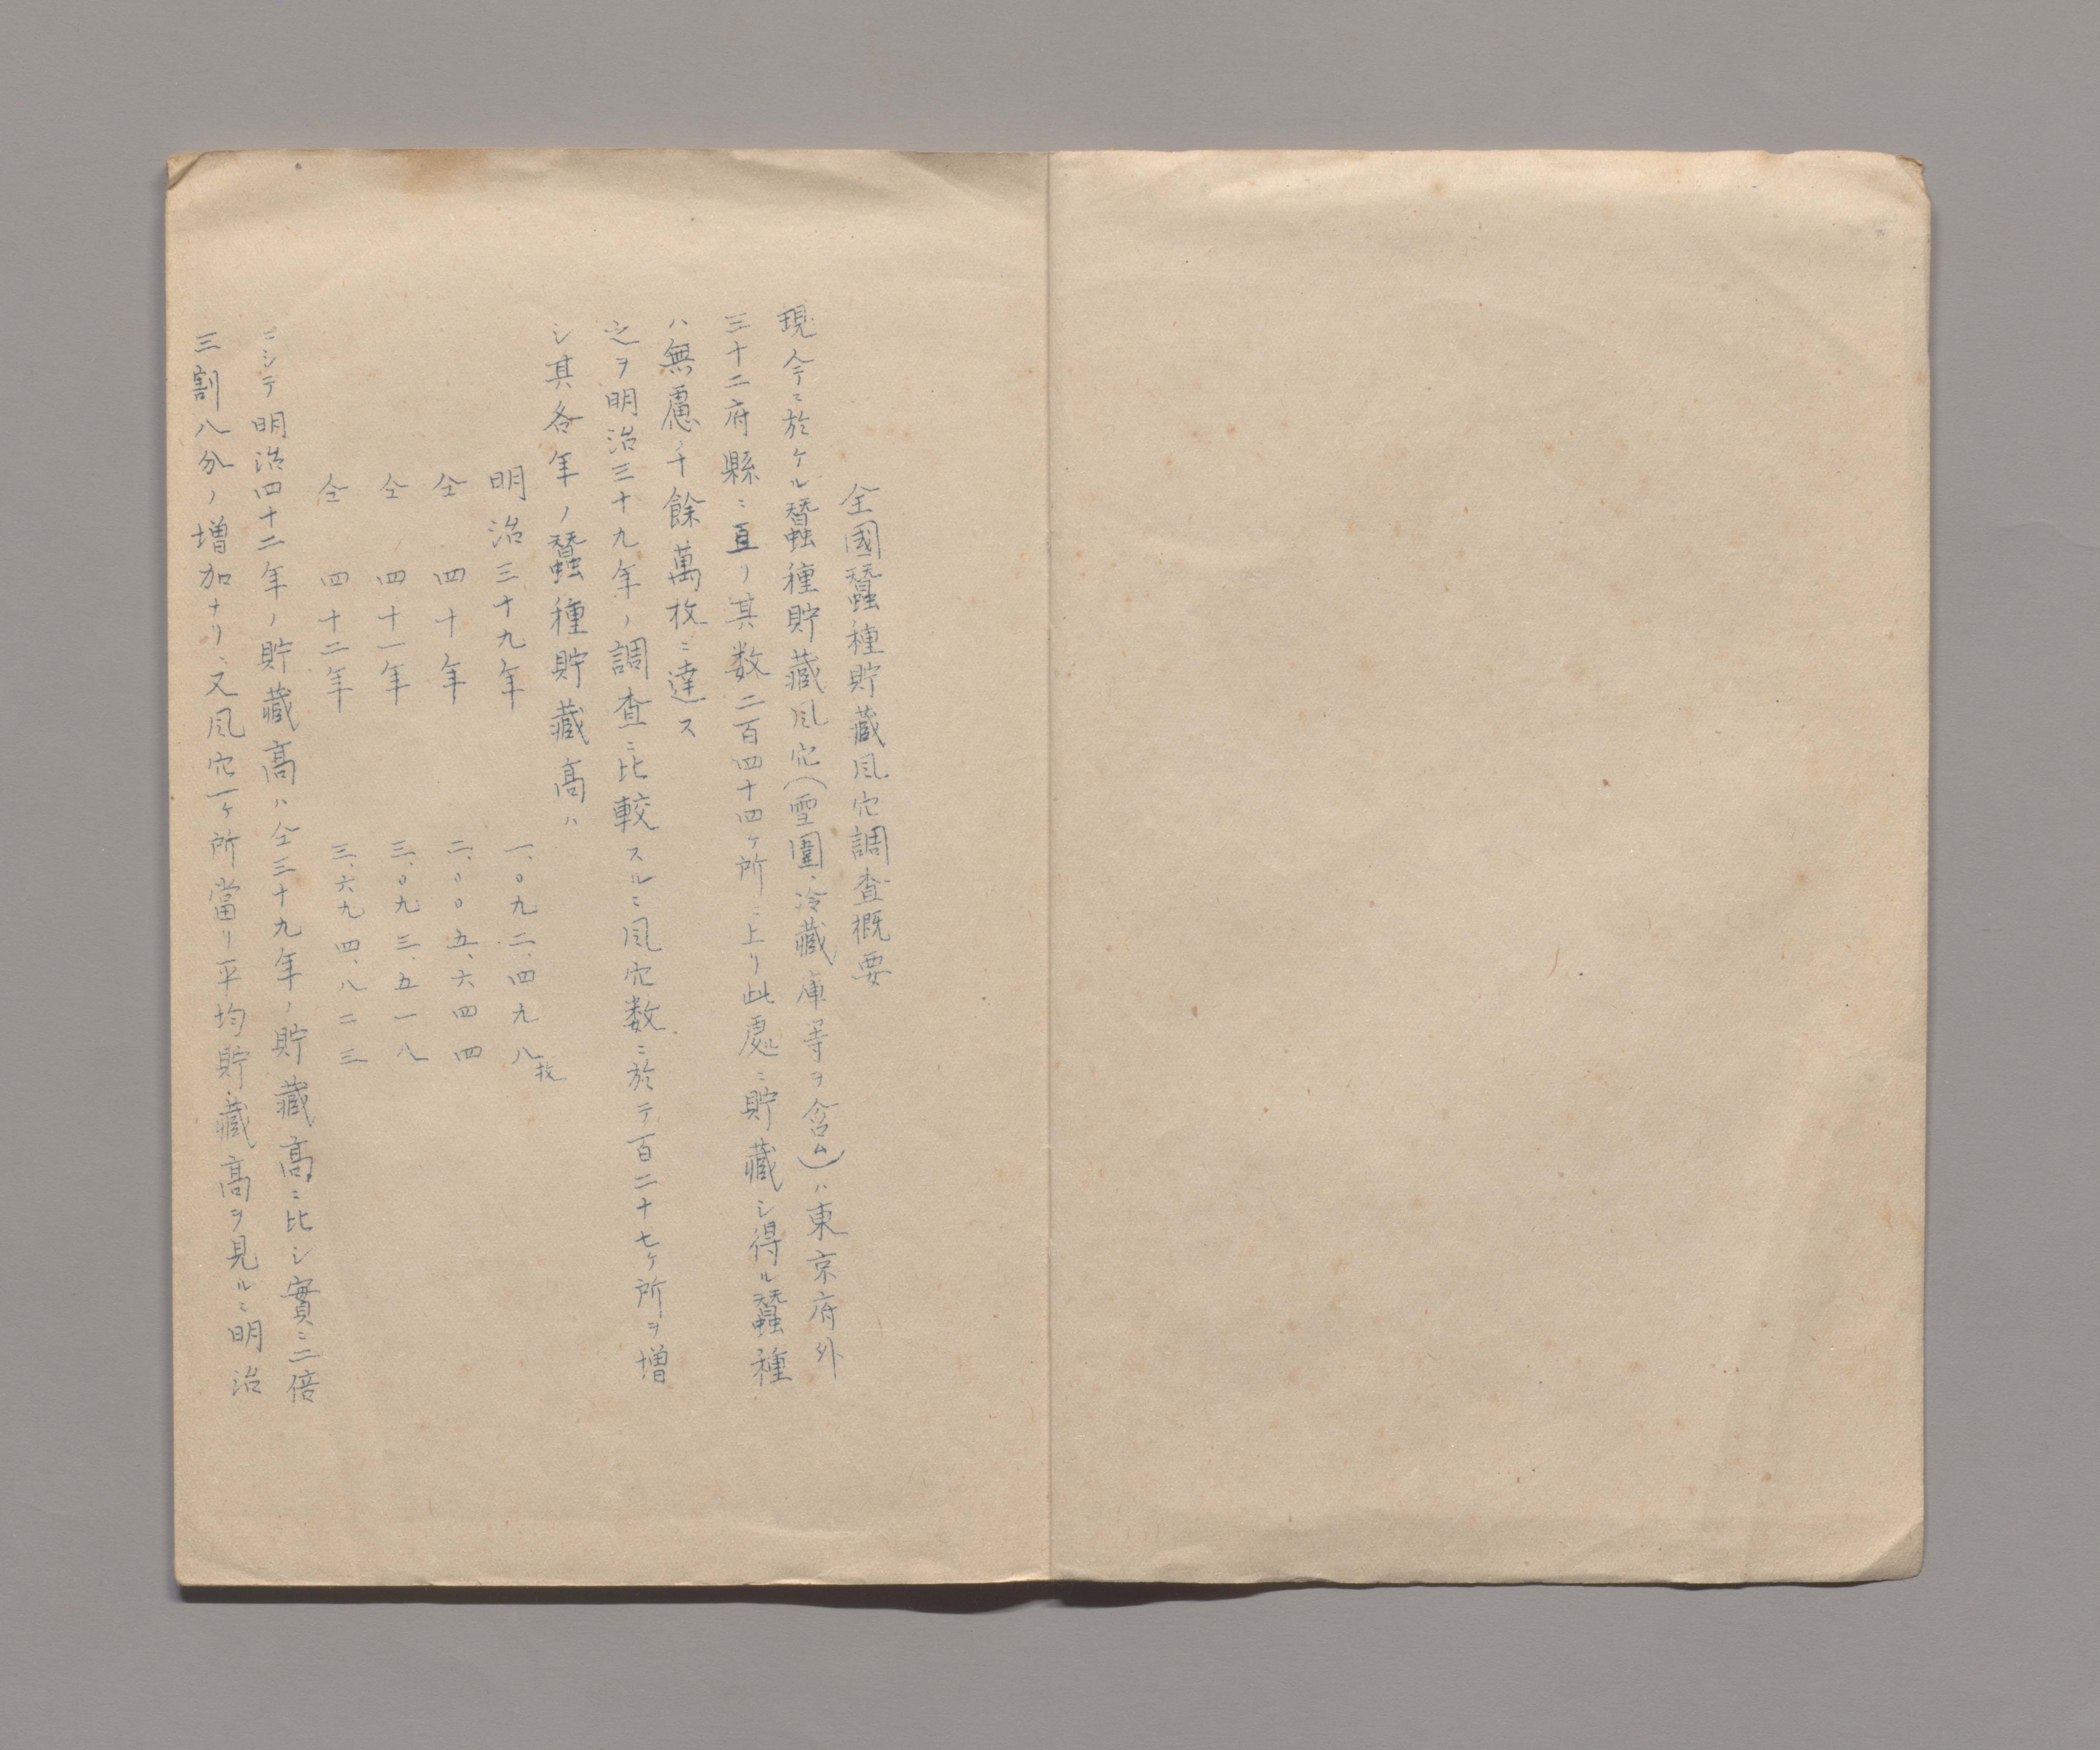 全國蠶種貯藏風穴調査概要
現今ニ於ケル蠶種貯藏風穴(雪圍、冷藏庫等ヲ含ム)ハ東京府外
三十二府縣ニ亘リ其数二百四十四ヶ所ニ上リ此處ニ貯藏シ得ル蠶種
ハ無慮千餘萬枚ニ達ス
之ヲ明治三十九年ノ調査ニ比較スルニ風穴数ニ於テ百二十七ヶ所ヲ増
シ其各年ノ蠶種貯藏高ハ
明治三十九年 一、〇九二、四九八枚
仝 四十年 二、〇〇五、六四四
仝 四十一年 三、〇九三、五一八
仝 四十二年 三、六九四、八二三
ニシテ明治四十二年ノ貯藏高ハ仝三十九年ノ貯藏高ニ比シ實ニ二倍
三割八分ノ増加ナリ、又風穴一ヶ所當リ平均貯藏高ヲ見ルニ明治